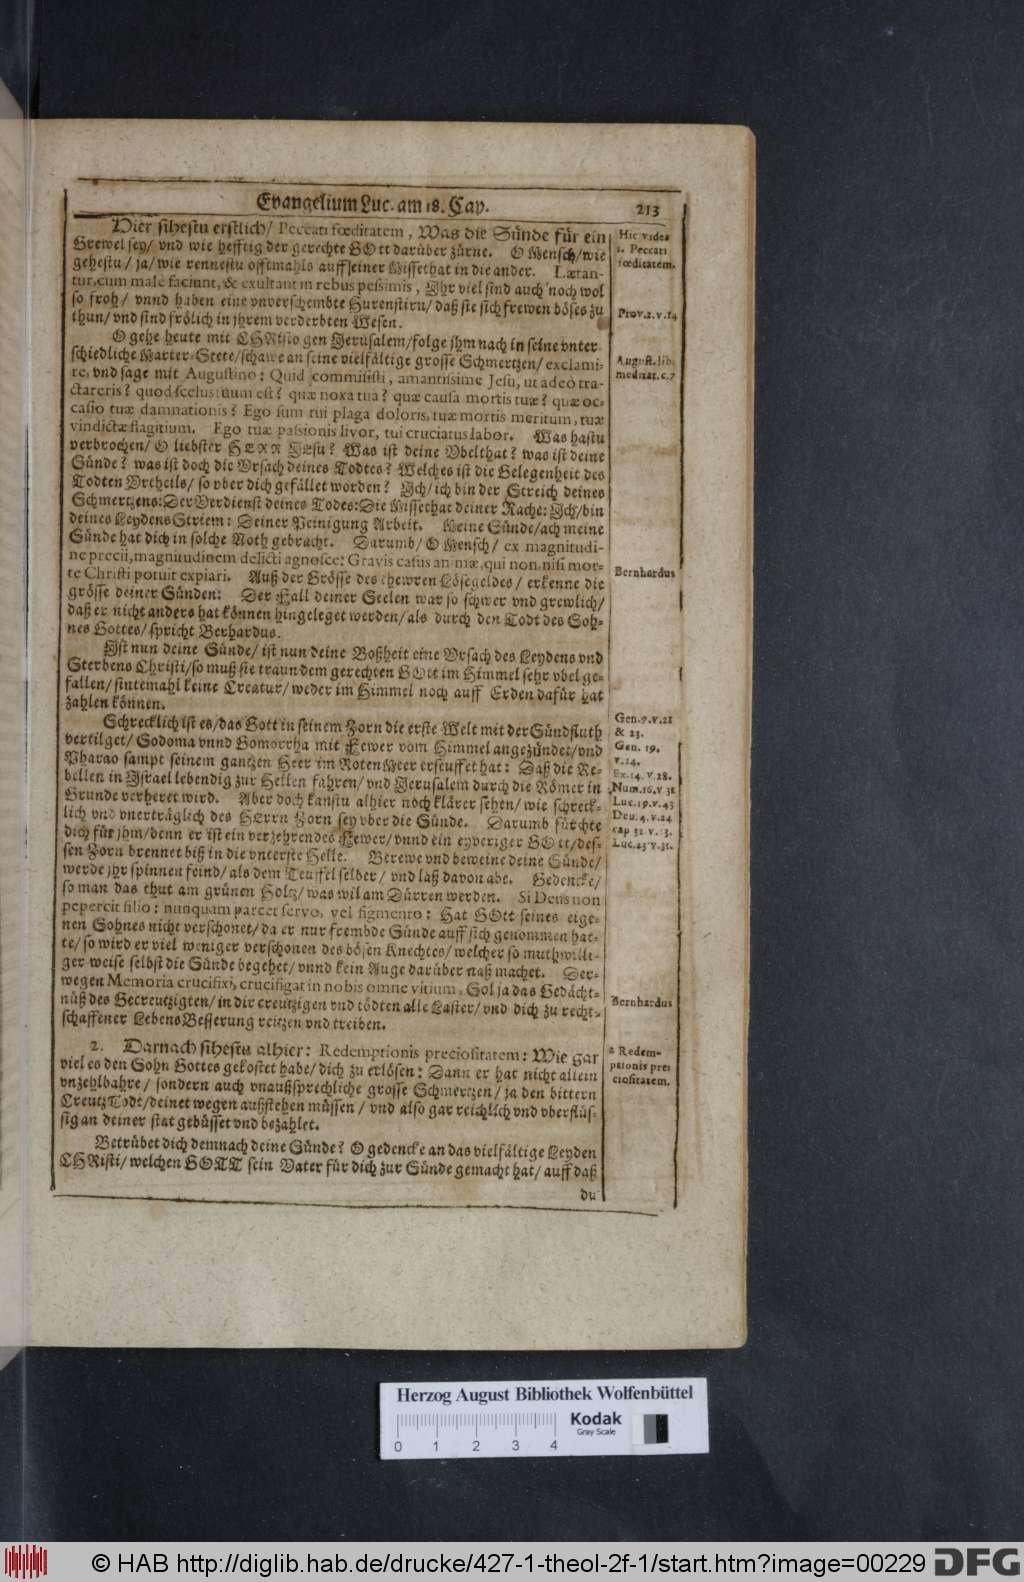 Evangelium Luc. am 18. Cap.
213
Hier sihestu erstlich/ Peccati fœditatem, Was die Sünde für ein
Grewel sey/ vnd wie hefftig der gerechte GOtt darüber zürne. O Mensch/wie
gehestu/ ja/ wie rennestu offtmahls auff deiner Missethat in die ander. Lætan-
tur, cum male faciunt, & exultant in rebus pessimis, Ihr viel sind auch noch wol
so froh/ vnnd haben eine vnverschembte Hurenstirn/ daß sie sich frewen böses zu
thun/ vnd sind frölich in jhrem verderbten Wesen.
O gehe heute mit CHRisto gen Jerusalem/folge jhm nach in seine vnter-
schiedliche Marter-Stete/schawe an seine vielfältige grosse Schmertzen/ exclami-
re, vnd sage mit Augustino: Quid commisisti, amantissime Jesu, ut adeò tra-
ctareris? quod scelus tuum est? quæ noxa tua? quæ causa mortis tuæ? quæ oc-
casio tuæ damnationis? Ego sum tui plaga doloris, tuæ mortis meritum, tuæ
vindictæ flagitium. Ego tuæ passionis livor, tui cruciatus labor. Was hastu
verbrochen/ O liebster HERR JEsu? Was ist deine Vbelthat? was ist deine
Sünde? was ist doch die Vrsach deines Todtes? Welches ist die Gelegenheit des
Todten Vrtheils/ so vber dich gefället worden? Ich/ ich bin der Streich deines
Schmertzens: Der Verdienst deines Todes: Die Missethat deiner Rache: Ich/ bin
deines Leydens Striem: Deiner Peinigung Arbeit. Meine Sünde/ach meine
Sünde hat dich in solche Noth gebracht. Darumb/ O Mensch/ ex magnitudi-
ne precii, magnitudinem delicti agnosce: Gravis casus animæ, qui non, nisi mor-
te Christi potuit expiari. Auß der Grösse des thewren Lösegeldes/ erkenne die
grösse deiner Sünden: Der Fall deiner Seelen war so schwer vnd grewlich/
daß er nicht anders hat können hingeleget werden/ als durch den Todt des Soh-
nes Gottes/ spricht Berhardus.
Ist nun deine Sünde/ ist nun deine Boßheit eine Vrsach des Leydens vnd
Sterbens Christi/ so muß sie traun dem gerechten GOtt im Himmel sehr vbel ge-
fallen/ sintemahl keine Creatur/ weder im Himmel noch auff Erden dafür hat
zahlen können.
Schrecklich ist es/das Gott in seinem Zorn die erste Welt mit der Sündfluth
vertilget/ Sodoma vnnd Gomorrha mit Fewer vom Himmel angezündet/vnd
Pharao sampt seinem gantzen Heer im Roten Meer erseuffet hat: Daß die Re-
bellen in Israel lebendig zur Hellen fahren/ vnd Jerusalem durch die Römer in
Grunde verheret wird. Aber doch kanstu alhier noch klärer sehen/ wie schreck-
lich vnd vnerträglich des HErrn Zorn sey vber die Sünde. Darumb fürchte
dich für jhm/denn er ist ein verzehrendes Fewer/ vnnd ein eyveriger GOtt/des-
sen Zorn brennet biß in die vnterste Helle. Berewe vnd beweine deine Sünde/
werde jhr spinnen feind/ als dem Teuffel selber/ vnd laß davon abe. Gedencke/
so man das thut am grünen Holtz/ was wil am Dürren werden. Si Deus non
pepercit filio: nunquam parcet servo, vel figmento: Hat GOtt seines eige-
nen Sohnes nicht verschonet/ da er nur frembde Sünde auff sich genommen hat-
te/ so wird er viel weniger verschonen des bösen Knechtes/ welcher so muthwilli-
ger weise selbst die Sünde begehet/ vnnd kein Auge darüber naß machet. Der-
wegen Memoria crucifixi, crucifigat in nobis omne vitium. Sol ja das Gedächt-
nüß des Gecreutzigten/ in dir creutzigen vnd tödten alle Laster/ vnd dich zu recht-
schaffener Lebens Besserung reitzen vnd treiben.
2. Darnach sihestu alhier: Redemptionis preciositatem: Wie gar
viel es den Sohn Gottes gekostet habe/ dich zu erlösen: Dann er hat nicht allein
vnzehlbahre/ sondern auch vnaußsprechliche grosse Schmertzen/ ja den bittern
Creutz Todt/deinet wegen außstehen müssen/ vnd also gar reichlich vnd vberflüs-
sig an deiner stat gebüsset vnd bezahlet.
Betrübet dich demnach deine Sünde? O gedencke an das vielfältige Leyden
CHRisti/ welchen GOTT sein Vater für dich zur Sünde gemacht hat/ auff daß
du
Hic vides
1. Peccati
fœditatem.
Prov. 2. v. 14
August. lib.
meditat. c. 7
Bernhardus
Gen. 7. v. 21
& 23.
Gen. 19.
v. 24.
Ex. 14. v. 28.
Num. 16. v. 31
Luc. 19. v. 43
Deu. 4. v. 24
cap 32. v.
Luc. 23 v. 31.
Bernhardus
2 Redem-
ptionis pre-
ciositatem.
Herzog August Bibliothek Wolfenbüttel
Kodak
Gray Scale
0 1 2 3 4
© HAB http://diglib.hab.de/drucke/427-1-theol-2f-1/start.htm?image=00229
DFG